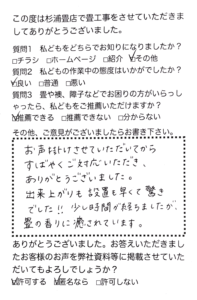 この度は杉浦畳店で畳工事をさせていただきま
してありがとうございました。
質問1 私どもをどちらでお知りになりましたか？
□チラシ □ホームページ □紹介 ☑その他
質問2 私どもの作業中の態度はいかがでしたか？
☑良い □普通 □悪い
質問3 畳や襖、障子などでお困りの方がいらっし
ゃったら、私どもをご推薦いただけますか？
☑推薦できる □推薦できない □分からない
その他、ご意見がございましたらお書き下さい。
お声掛けさせていただいてから
すばやくご対応いただき、
ありがとうございました。
出来上がりも設置も早くて驚き
でした!! 少し時間が経ちましたが、
畳の香りに癒されています。
ありがとうございました。お答えいただきまし
たお客様のお声を弊社資料等に掲載させていた
だいてもよろしでしょうか？
☑許可する ☑匿名なら □許可しない